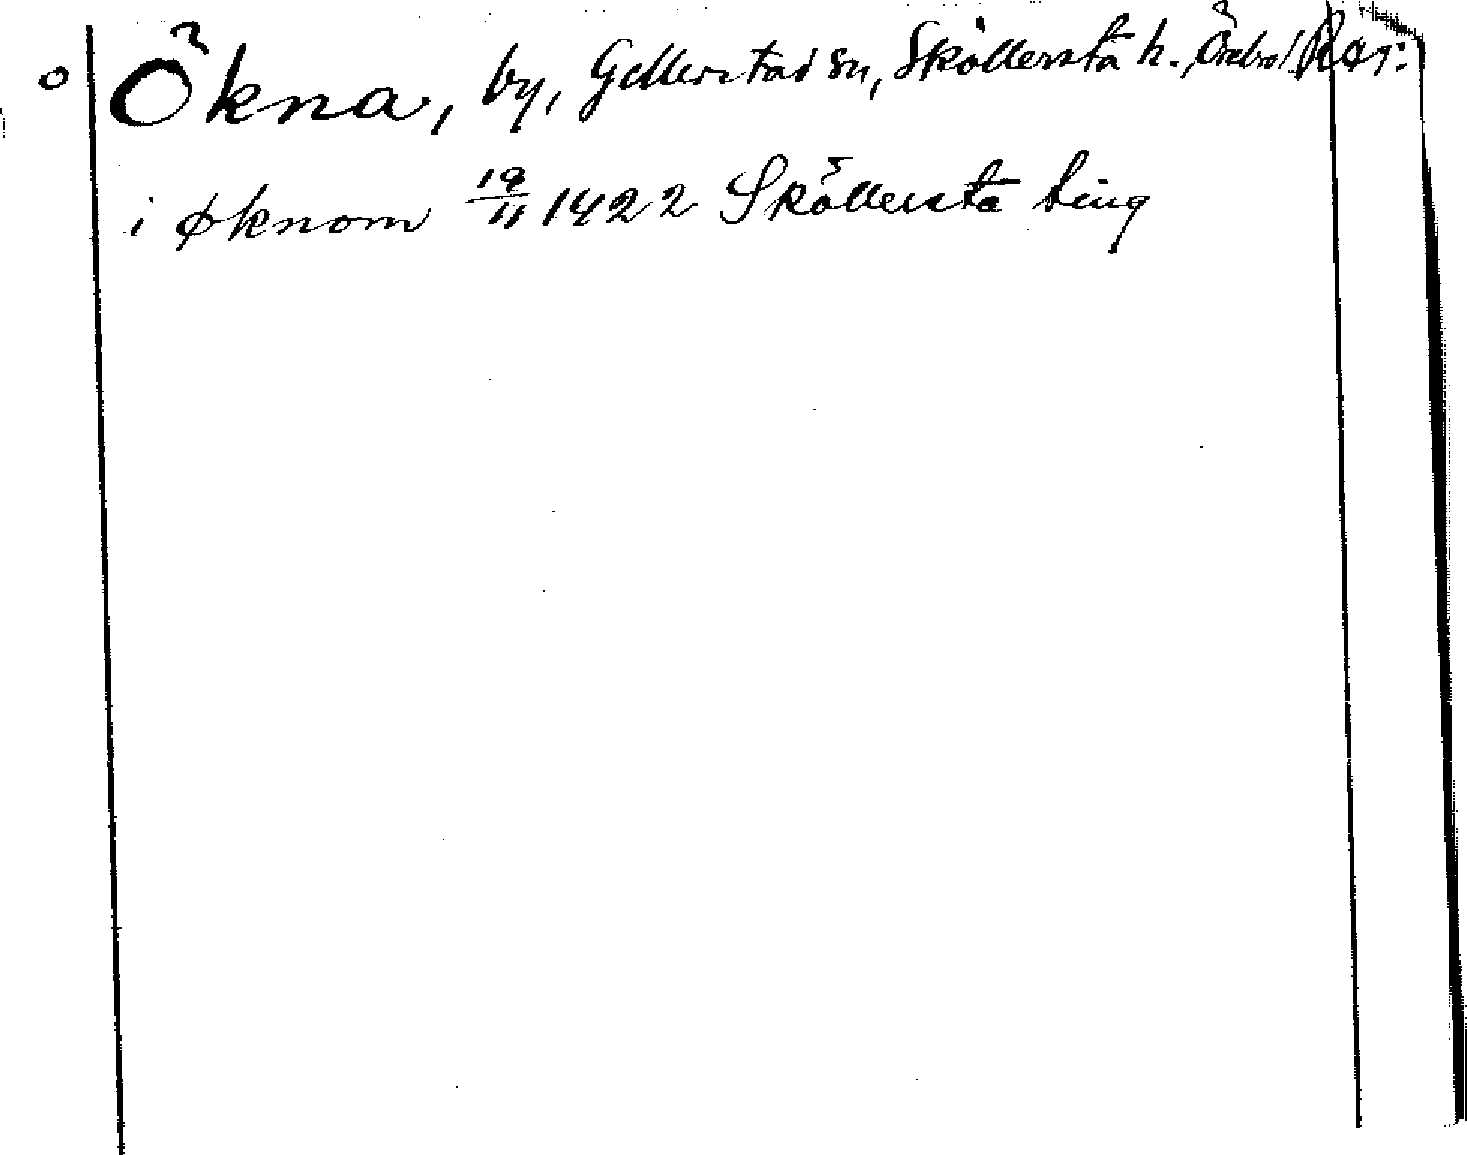 Ökna, by, Gellerstad sn, Sköllersta h. Örebro l. RAP:
i øknom 19/11 1422 Sköllersta ting